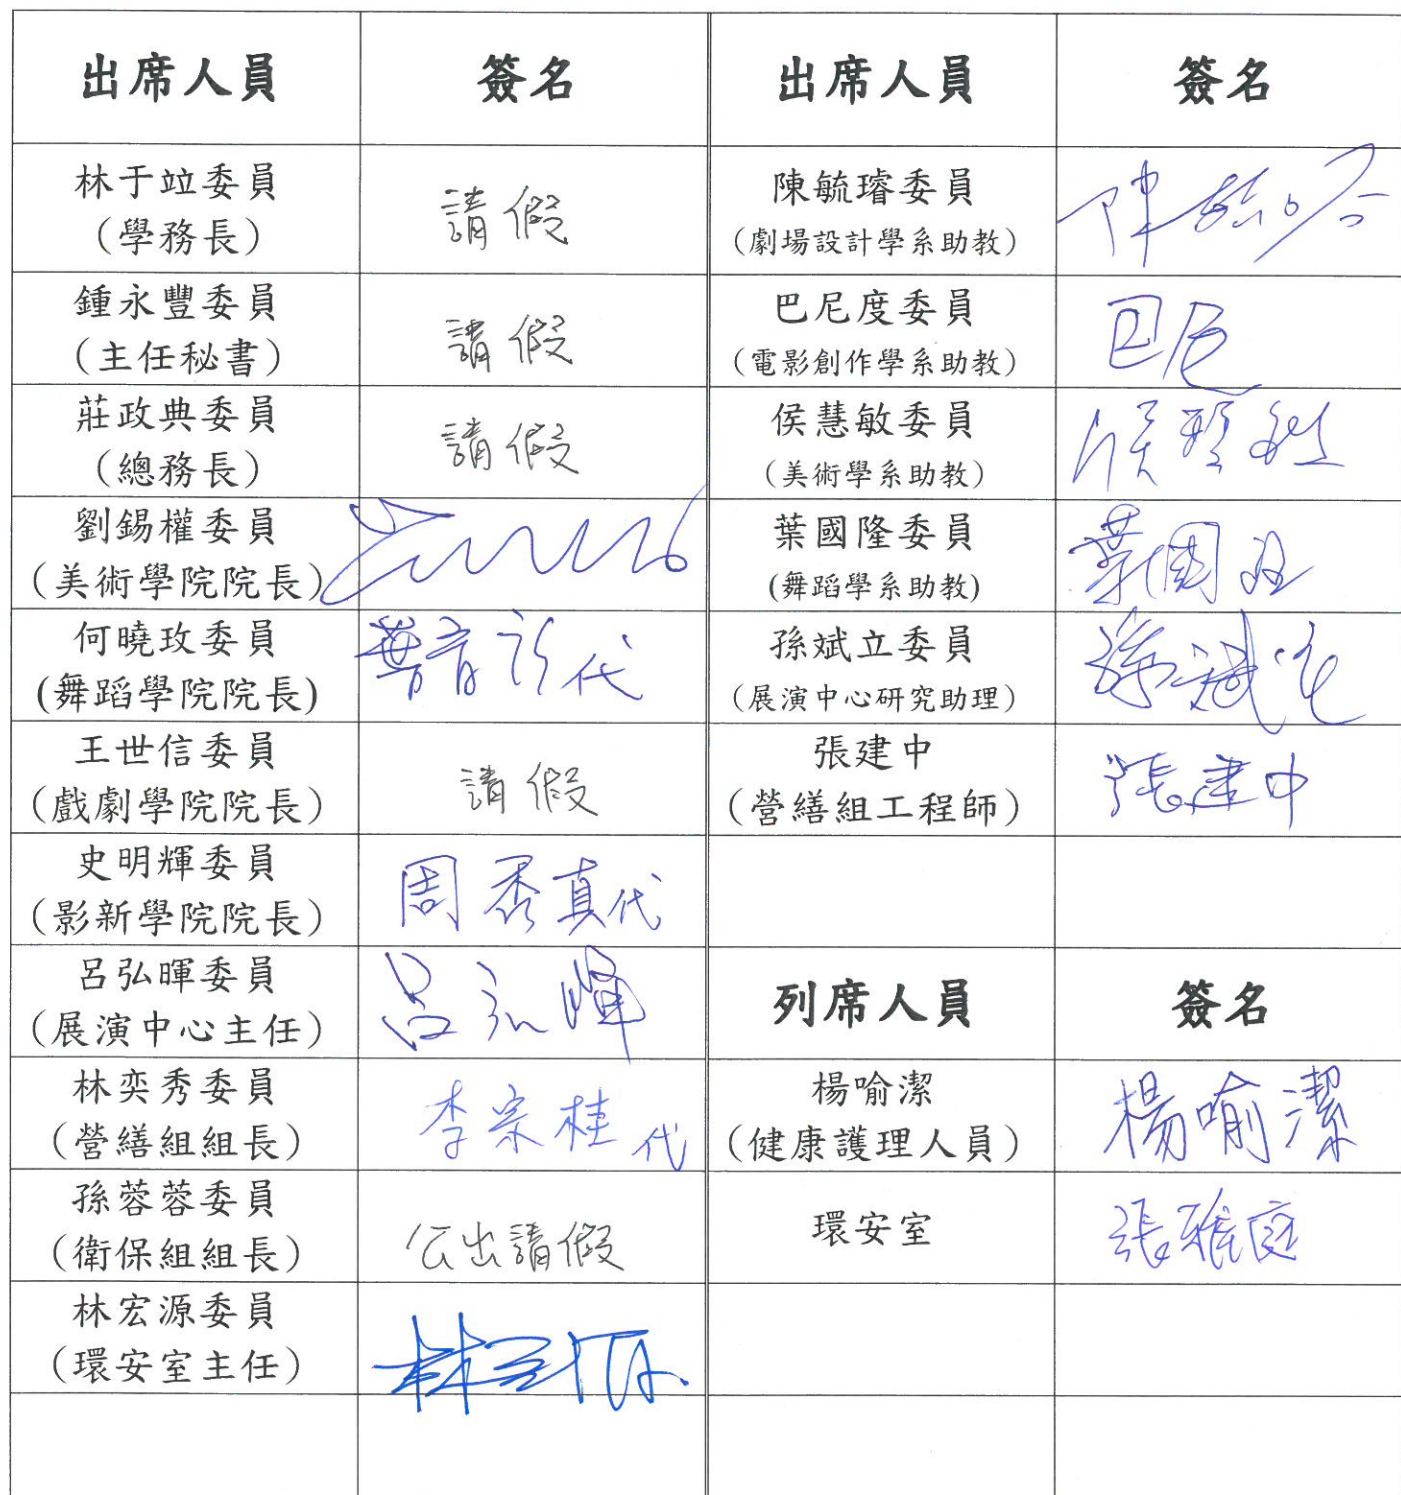 出席人員 簽名 出席人員 簽名
林于竝委員
(學務長)
請假
陳毓璿委員
(劇場設計學系助教)
鍾永豐委員
(主任秘書)
請假
巴尼度委員
(電影創作學系助教)
巴尼
莊政典委員
(總務長)
請假
侯慧敏委員
(美術學系助教)
侯慧敏
劉錫權委員
(美術學院院長)
葉國隆委員
(舞蹈學系助教)
葉國隆
何曉玫委員
(舞蹈學院院長)
代
孫斌立委員
(展演中心研究助理)
孫斌立
王世信委員
(戲劇學院院長)
請假
張建中
(營繕組工程師)
張建中
史明輝委員
(影新學院院長)
周 真代
呂弘暉委員
(展演中心主任)
呂弘暉
列席人員 簽名
林奕秀委員
(營繕組組長)
李宗桂代
楊喻潔
(健康護理人員)
楊喻潔
孫蓉蓉委員
(衛保組組長)
公出請假
環安室
張雅庭
林宏源委員
(環安室主任)
林宏源